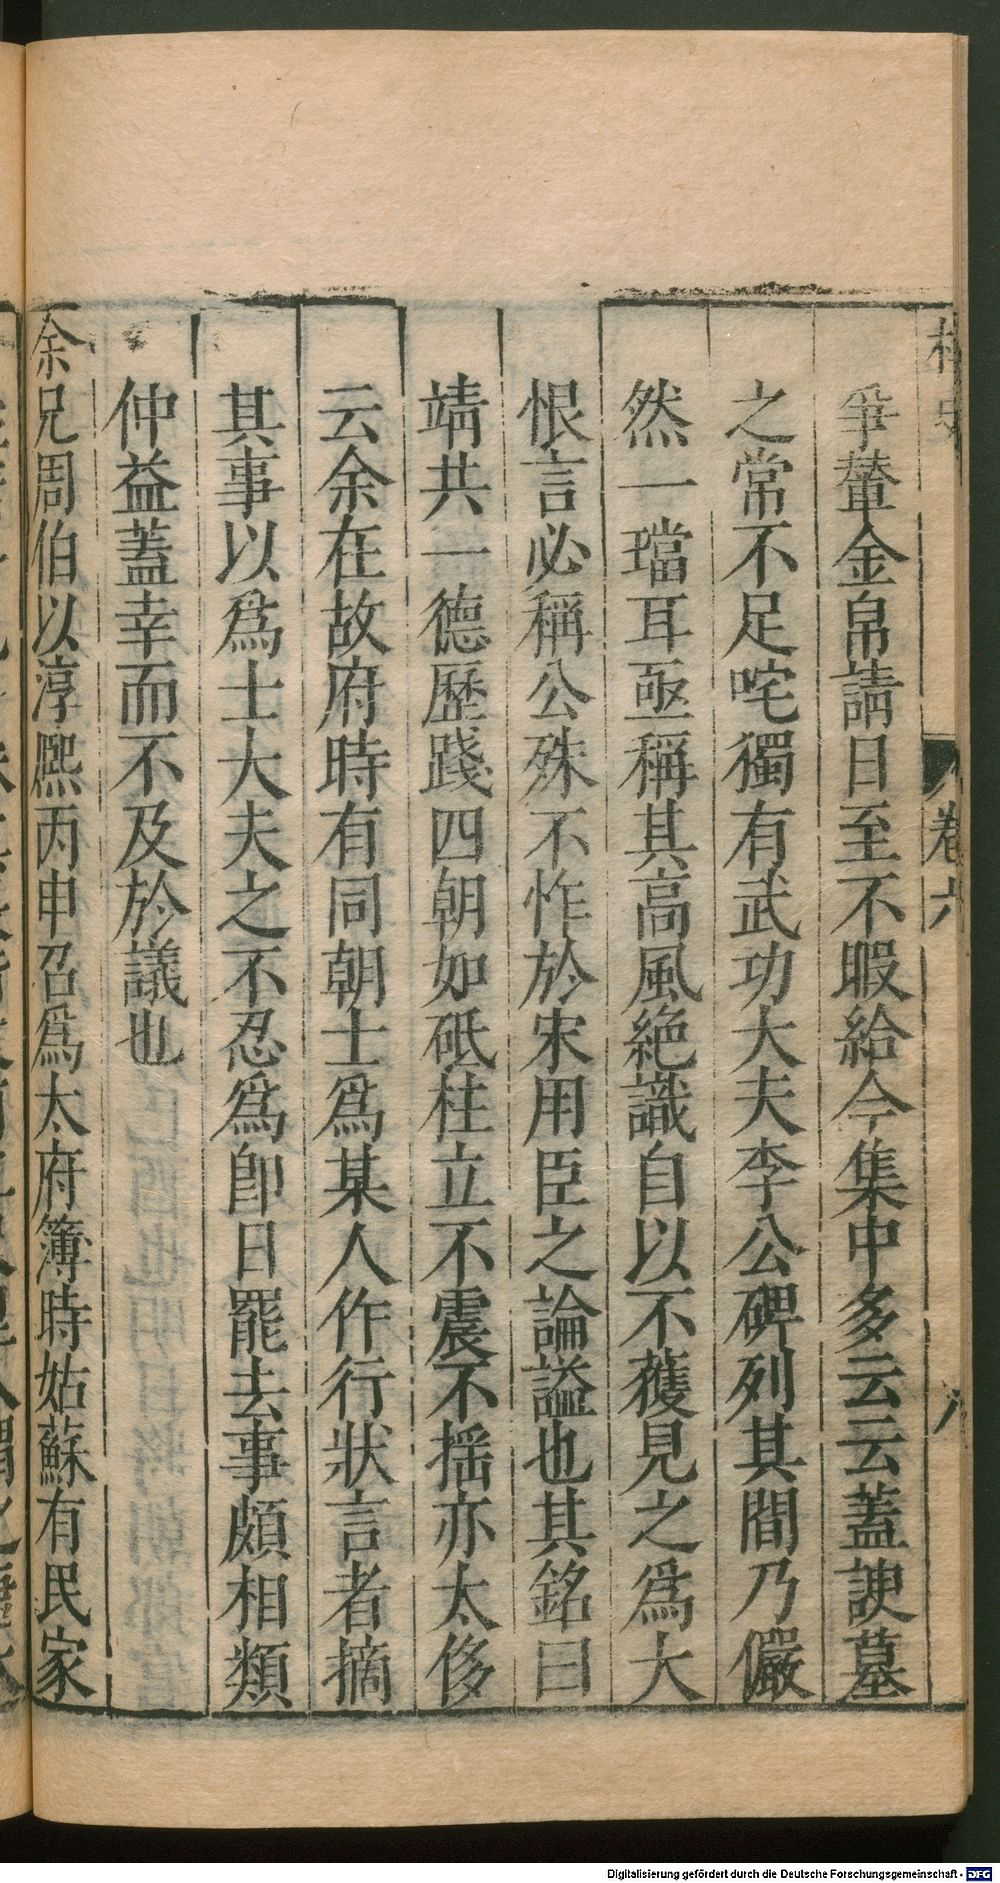 卷六
爭輦金帛請日至不暇給今集中多云云蓋諛墓
之常不足咤獨有武功大夫李公碑列其間乃儼
然一璫耳亟稱其高風絶識自以不獲見之爲大
恨言必稱公殊不怍於宋用臣之論謚也其銘曰
靖共一德歷踐四朝如砥柱立不震不揺亦太侈
云余在故府時有同朝士爲某人作行狀言者摘
其事以爲士大夫之不忍爲即日罷去事頗相類
仲益蓋幸而不及於議也
余兄周伯以淳熈丙申召爲太府簿時姑蘇有民家
Digitalisierung gefördert durch die Deutsche Forschungsgemeinschaft - DFG